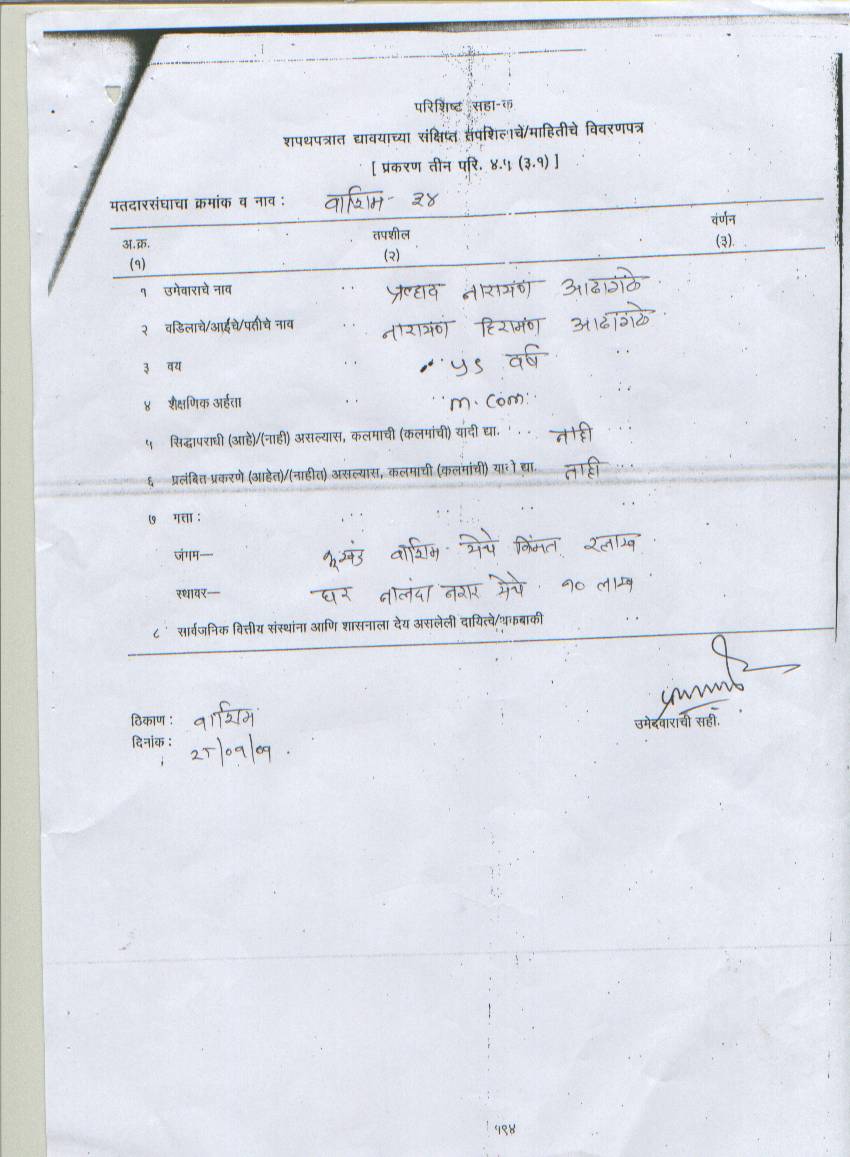 परिशिष्ट सहा-क
शपथपत्रात द्यावयाच्या संक्षिप्त तपशिलाचे/माहितीचे विवरणपत्र
[ प्रकरण तीन परि. ४.५ (३.१) ]
मतदारसंघाचा क्रमांक व नाव : वाशिम - ३४
अ.क्र. तपशील वर्णन
(१) (२) (३)
१ उमेवाराचे नाव प्रल्हाद नारायण आढागळे
२ वडिलाचे/आईचे/पतीचे नाव नारायण हिरामण आढागळे
३ वय ५८ वर्ष
४ शैक्षणिक अर्हता M. Com.
५ सिद्धापराधी (आहे)/(नाही) असल्यास, कलमाची (कलमांची) यादी द्या. नाही
६ प्रलंबित प्रकरणे (आहेत)/(नाहीत) असल्यास, कलमाची (कलमांची) यादी द्या. नाही
७ मत्ता :
जंगम— भूखंड वाशिम येथे किंमत २लाख
स्थावर— घर नालंदा नगर येथे १० लाख
८ सार्वजनिक वित्तीय संस्थांना आणि शासनाला देय असलेली दायित्वे/थकबाकी
उमेदवाराची सही.
ठिकाण : वाशिम
दिनांक : २५/०९/०९.
१९४